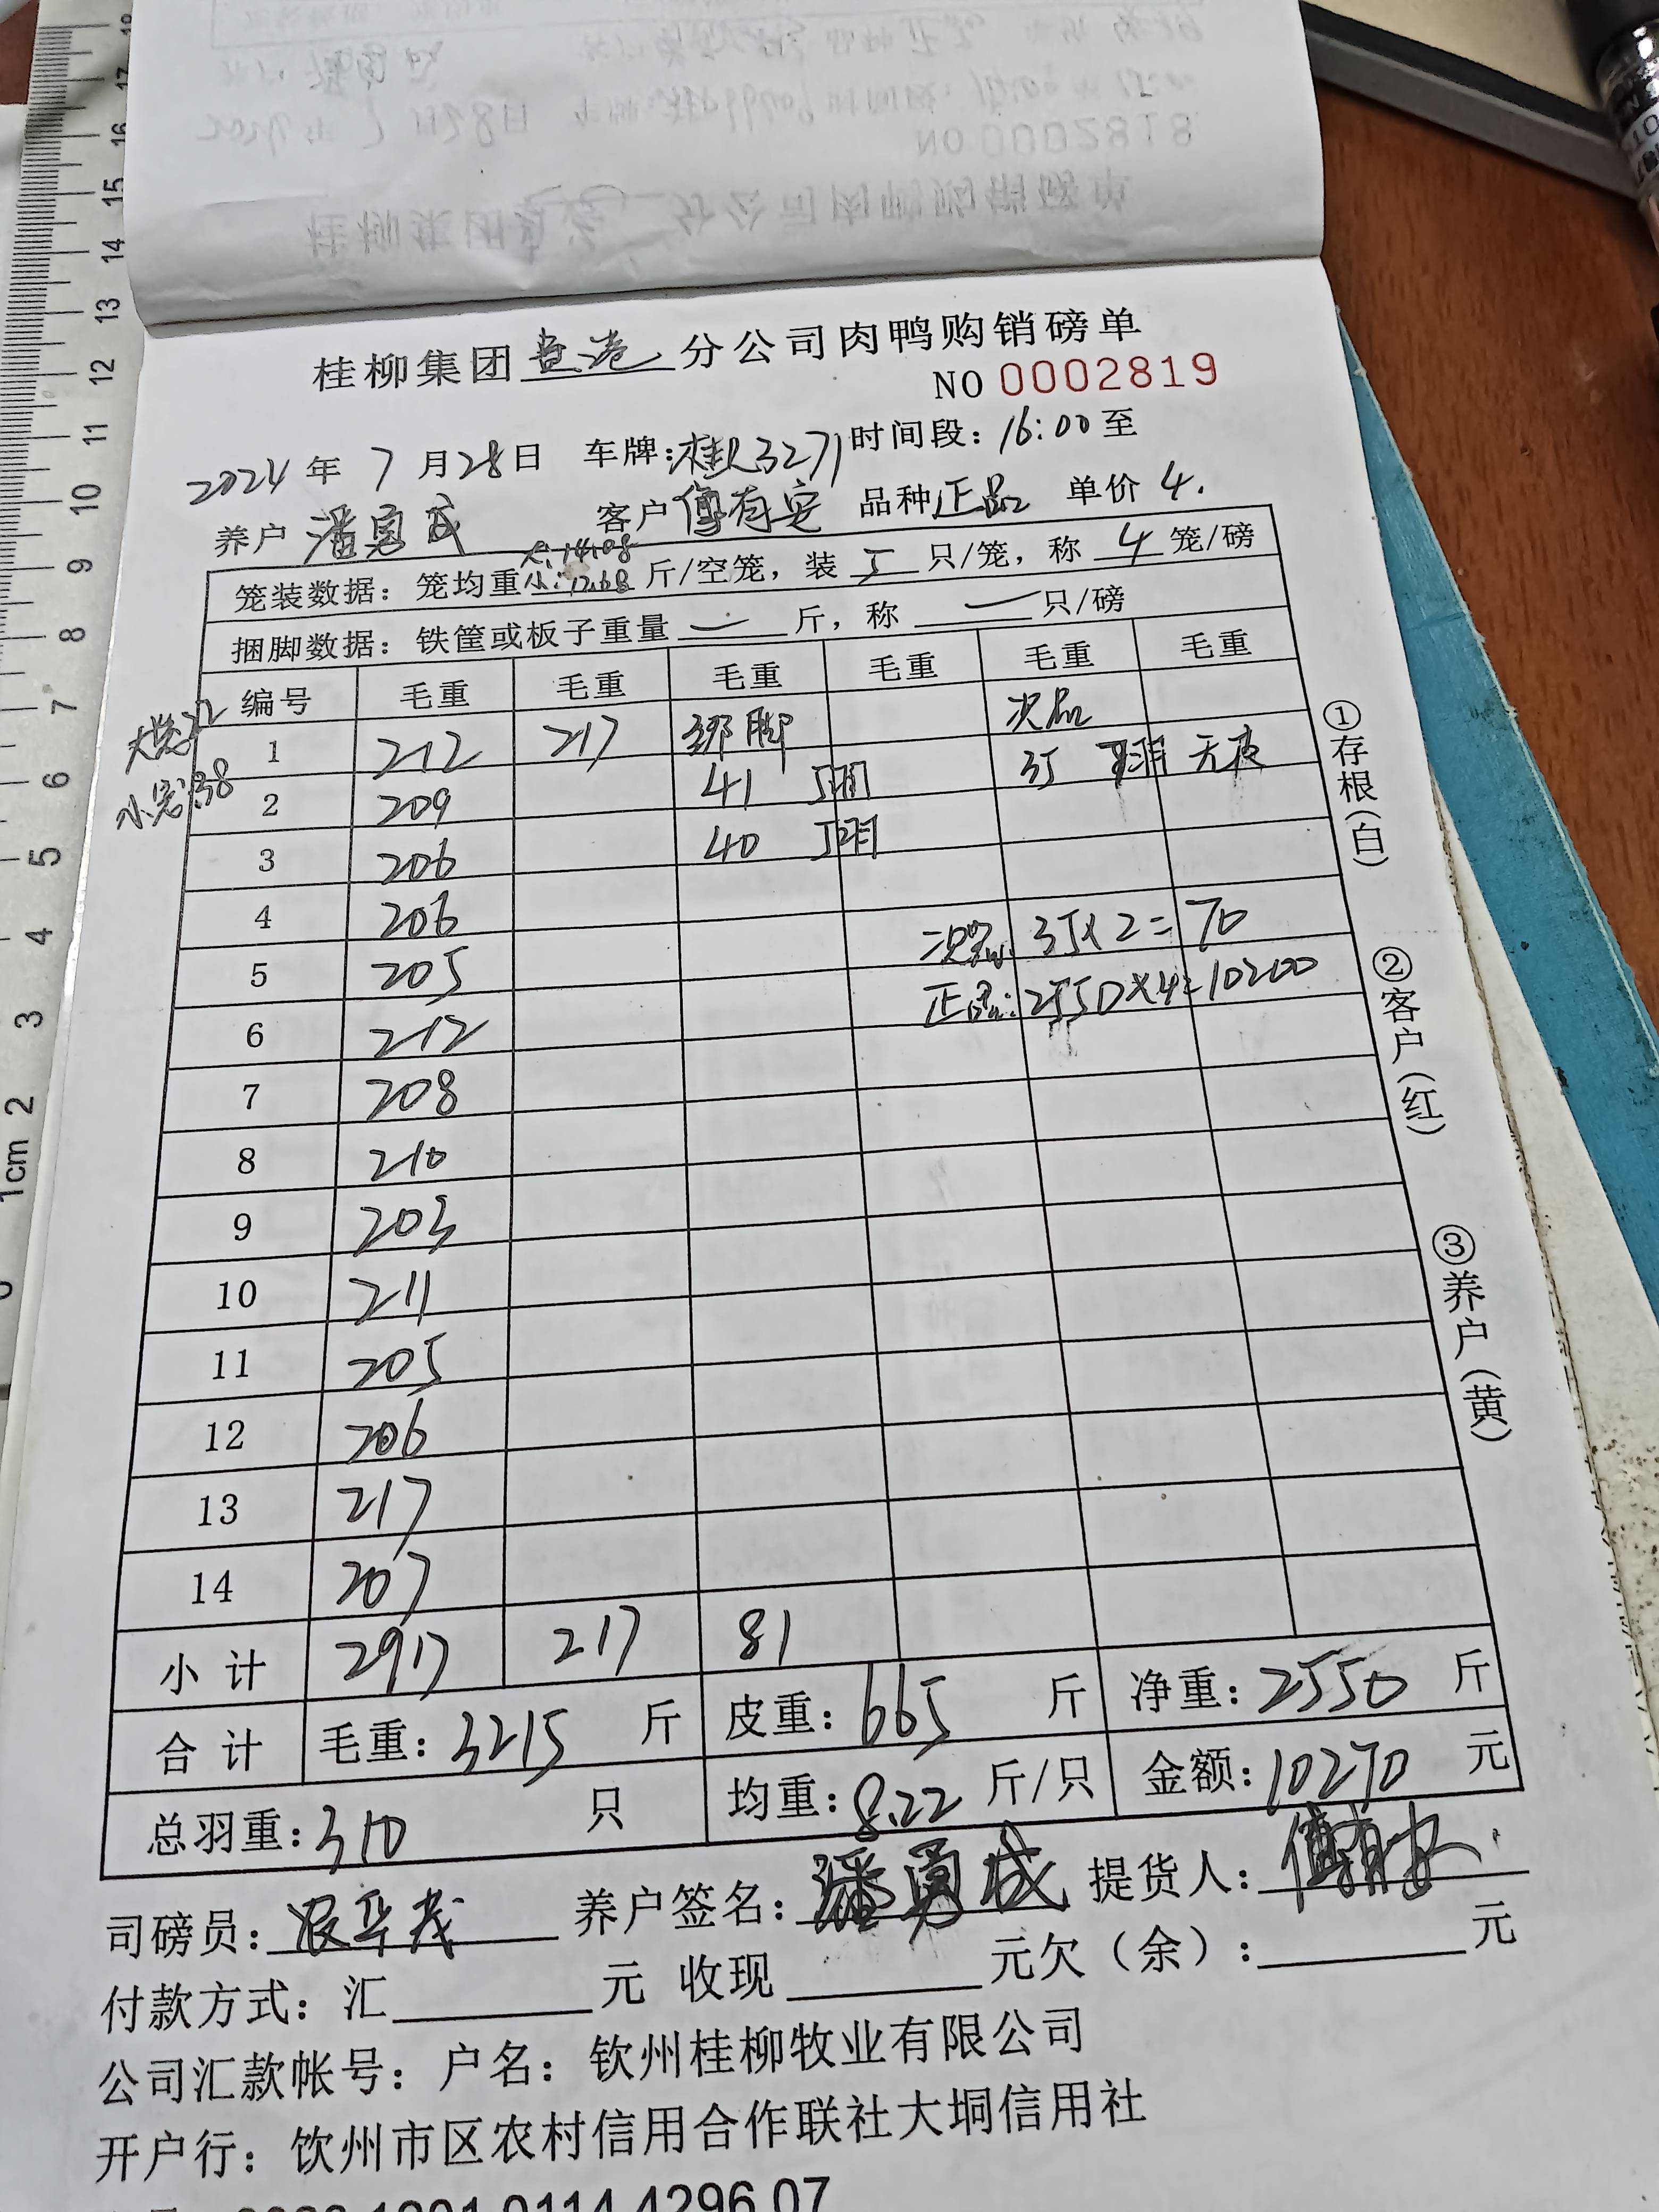 桂柳集团分公司肉鸭购销磅单
NO 0002819
2024年 7 月28日 车牌:桂R3271 时间段: 16:00 至
养户 潘勇成 客户 傅有安 品种 正品 单价 4.
笼装数据: 笼均重 大:14.08 小:12.68 斤/空笼, 装 5 只/笼, 称 4 笼/磅
捆脚数据: 铁筐或板子重量 — 斤, 称 — 只/磅
编号 毛重 毛重 毛重 毛重 毛重 毛重
大笼:22
小笼:38
次品
1 212 217 绑脚 35 无皮
2 209 41 5羽
3 206 40 5羽
4 206 次品: 35×2=70
5 205 正品: 2550×4=10200
6 212
7 208
8 210
9 203
10 211
11 205
12 206
13 217
14 207
小计 2917 217 81
合计 毛重: 3215 斤 皮重: 665 斤 净重: 2550 斤
总羽重: 310 只 均重: 8.22 斤/只 金额: 10270 元
司磅员: 农华茂 养户签名: 潘勇成 提货人: 傅有安
付款方式: 汇 元 收现 元欠(余): 元
公司汇款帐号: 户名: 钦州桂柳牧业有限公司
开户行: 钦州市区农村信用合作联社大垌信用社
①存根(白)
②客户(红)
③养户(黄)
NO 0002818
1cm 2 3 4 5 6 7 8 9 10 11 12 13 14 15 16 17 18